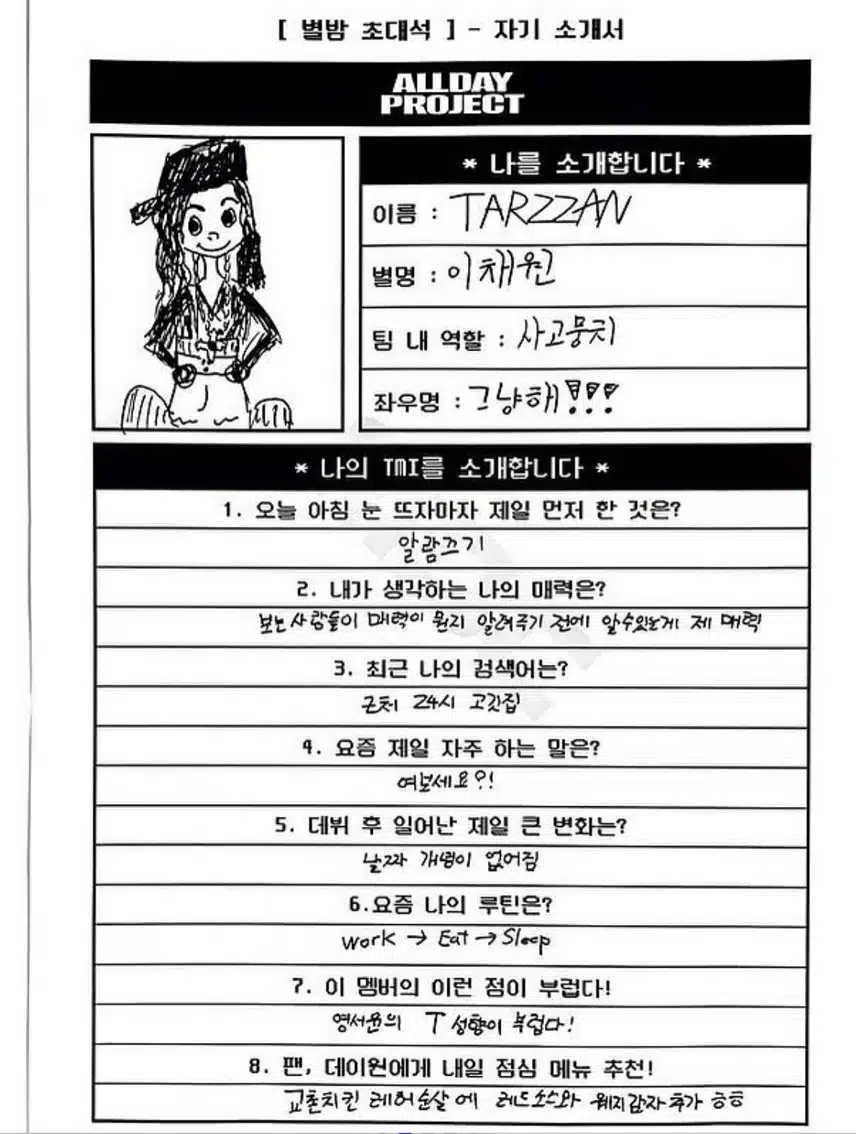 [ 별밤 초대석 ] - 자기 소개서
ALLDAY
PROJECT
* 나를 소개합니다 *
이름 : TARZZAN
별명 : 이채원
팀 내 역할 : 사고뭉치
좌우명 : 그냥해!!!
* 나의 TMI를 소개합니다 *
1. 오늘 아침 눈 뜨자마자 제일 먼저 한 것은?
알람끄기
2. 내가 생각하는 나의 매력은?
보는사람들이 매력이 뭔지 알려주기 전에 알수있는게 제 매력
3. 최근 나의 검색어는?
근처 24시 고깃집
4. 요즘 제일 자주 하는 말은?
여보세요?!
5. 데뷔 후 일어난 제일 큰 변화는?
날짜 개념이 없어짐
6.요즘 나의 루틴은?
work → Eat → Sleep
7. 이 멤버의 이런 점이 부럽다!
영서윤의 T 성향이 부럽다!
8. 팬, 데이원에게 내일 점심 메뉴 추천!
교촌치킨 레허순살에 레드소스와 웨지감자추가 ㅎㅎ